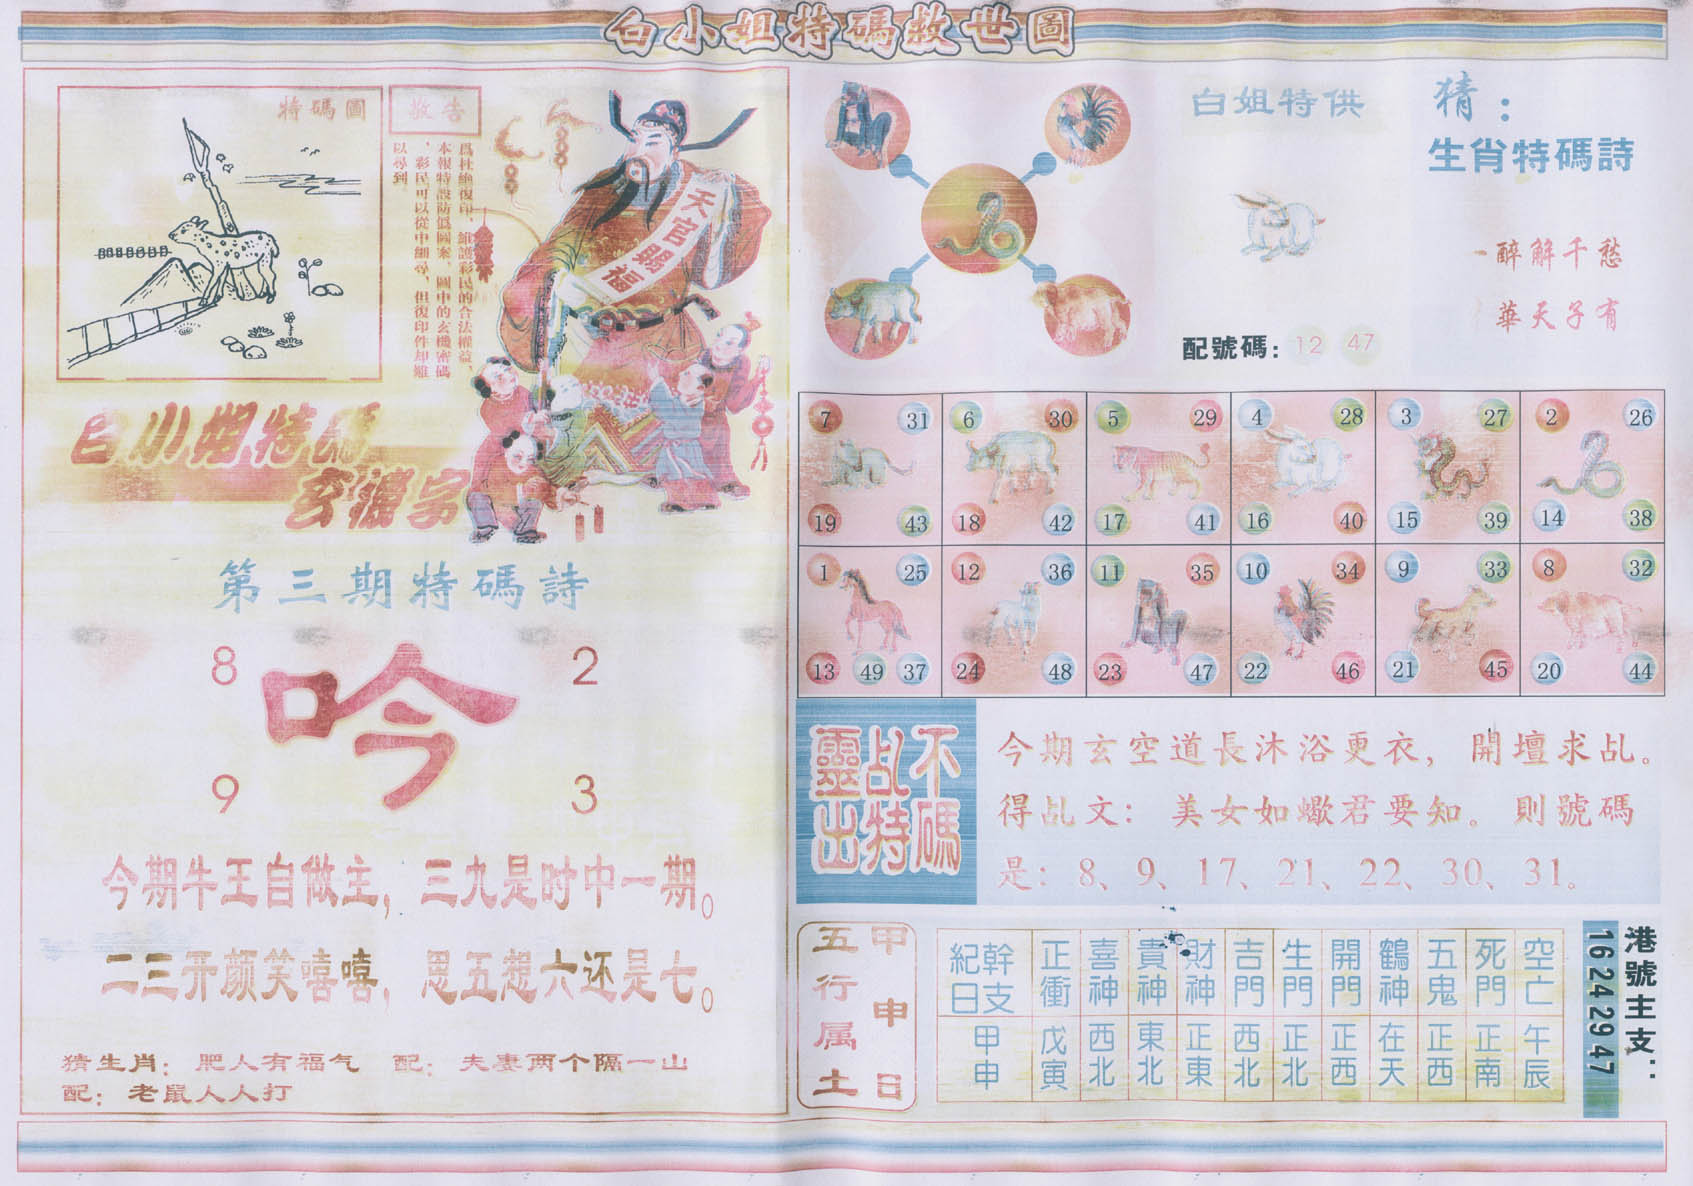 白小姐特碼救世圖
特碼圖
敬告
爲杜絶復印，維護彩民的合法權益，
本報特設防僞圖案，圖中的玄機密碼
，彩民可以從中細尋，但復印件却難
以尋到。
天官賜福
白小姐特碼
玄機字
第三期特碼詩
8 2
吟
9 3
今期牛王自做主，三九是时中一期。
二三开颜笑嘻嘻，思五想六还是七。
猜生肖：肥人有福气 配：夫妻两个隔一山
配：老鼠人人打
白姐特供
配號碼：12 47
猜：
生肖特碼詩
一醉解千愁
華天子有
7 31 6 30 5 29 4 28 3 27 2 26
19 43 18 42 17 41 16 40 15 39 14 38
1 25 12 36 11 35 10 34 9 33 8 32
13 49 37 24 48 23 47 22 46 21 45 20 44
不碼
乩特
靈出
今期玄空道長沐浴更衣，開壇求乩。
得乩文：美女如蠍君要知。則號碼
是：8、9、17、21、22、30、31。
甲申日
五行属土
幹支
紀日
正衝 喜神 貴神 財神 吉門 生門 開門 鶴神 五鬼 死門 空亡
甲申 戊寅 西北 東北 正東 西北 正北 正西 在天 正西 正南 午辰
港號主支：
16 24 29 47